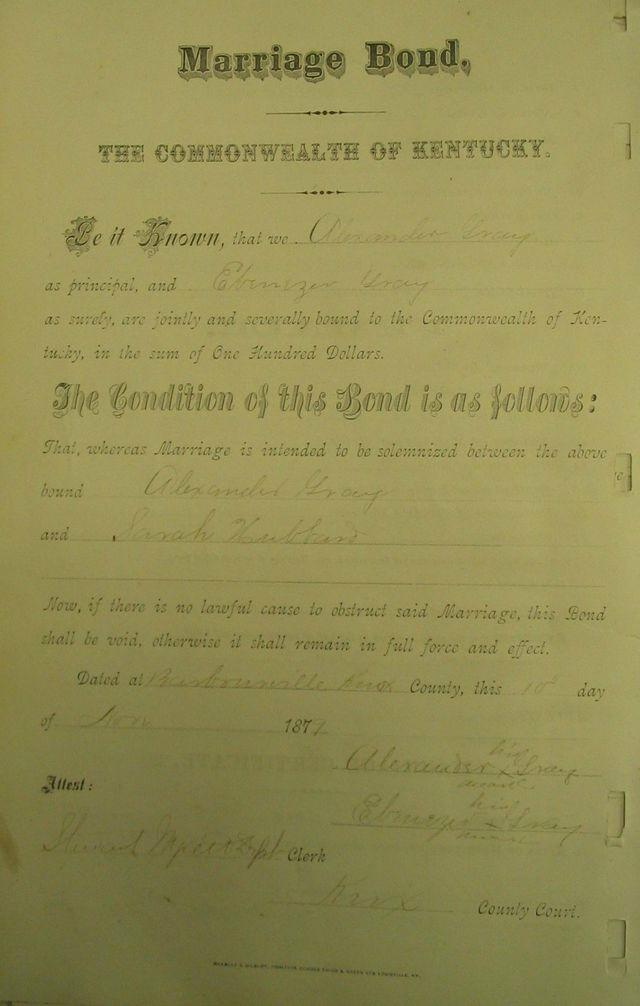 Marriage Bond,
THE COMMONWEALTH OF KENTUCKY.
Be it Known, that we Alexander Gray
as principal, and Ebenezer Gray
as surely, are jointly and severally bound to the Commonwealth of Ken-
tucky, in the sum of One Hundred Dollars.
The Condition of this Bond is as follows:
That, whereas Marriage is intended to be solemnized between the above
bound Alexander Gray
and Sarah Hubbard
Now, if there is no lawful cause to obstruct said Marriage, this Bond
shall be void, otherwise it shall remain in full force and effect.
Dated at Barbourville Knox County, this 10 day
of Nov 1877
his
Alexander x Gray
mark
Attest:
his
Ebenezer x Gray
mark
Clerk
Knox County Court.